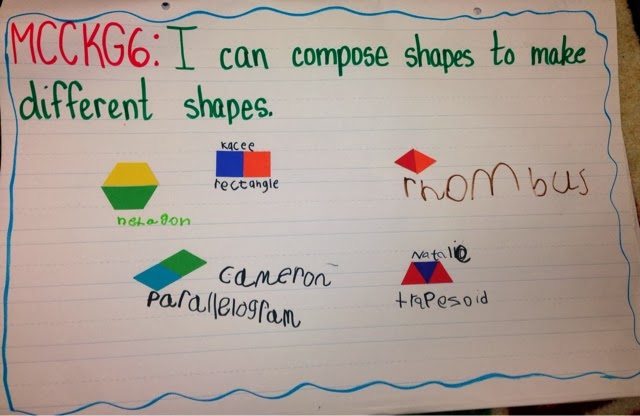 MCCKG6: I can compose shapes to make
different shapes.
Kacee
rectangle
hexagon
rhombus
Cameron
Parallelogram
Natalie
trapesoid